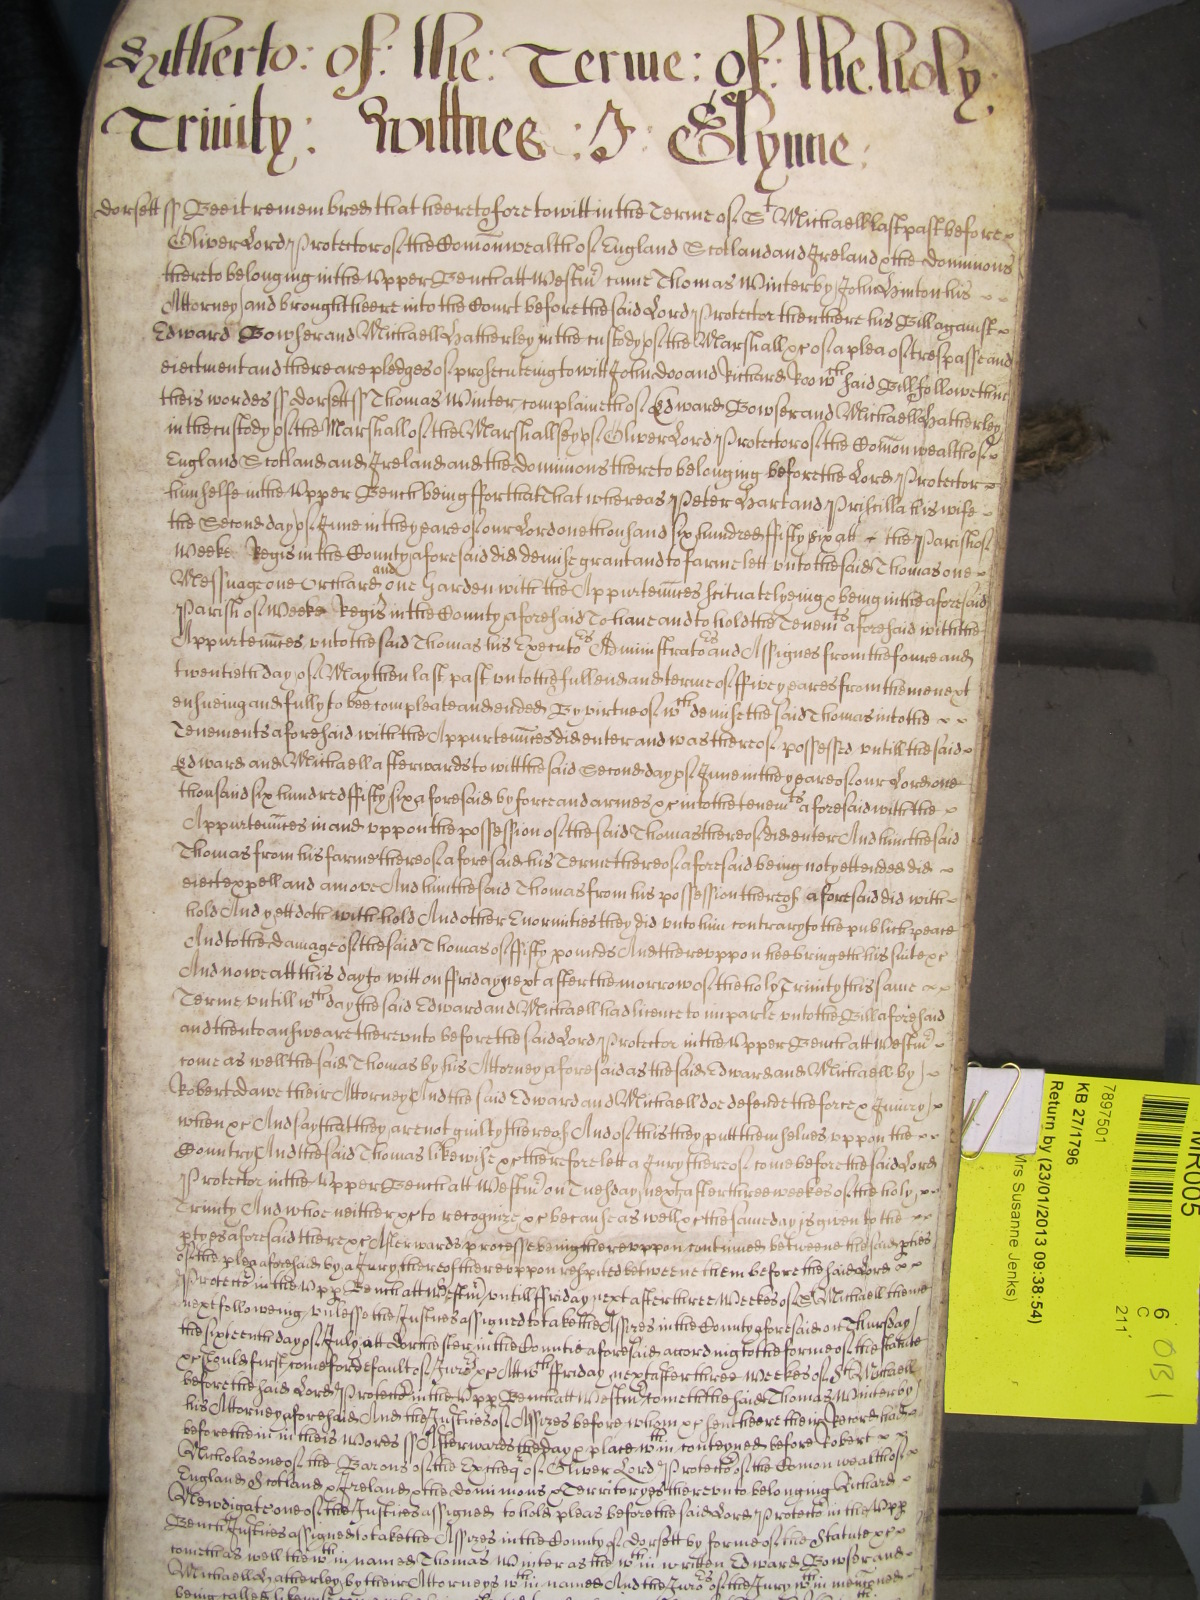 Hitherto: of: the: Terme: of: the: holy:
Trinity: Wittnes: J: Glynne:
Dorsett ss Bee it remembred that heeretofore to witt in the Terme of St Michaell last past before
Oliver Lord Protector of the Com̄onwealth of England Scotland and Ireland & the dominions
thereto belonging in the Upper Bench att Westmr came Thomas Winter by John Hinton his
Attorney and brought heere into the Court before the said Lord Protector then there his Bill against
Edward Bowser and Michaell Hatherley in the custody of the Marshall &c of a plea of trespasse and
eiectment and there are pledges of prosecuteing to witt John Doo and Richard Roo wch said Bill followeth in
theis wordes ss Dorsett ss Thomas Winter complaineth of Edward Bowser and Michaell Hatherley
in the custody of the Marshall of the Marshallsey of Oliver Lord Protector of the Com̄onwealth of
England Scotland and Ireland and the dominions thereto belonging before the Lord Protector
himselfe in the Upper Bench being ffor that That whereas Peter Hart and Priscilla his wife
the Second day of June in the yeare of our Lord one thousand six hundred ffifty six att the Parish of
Weeke Regis in the County aforesaid did demise grant and to farme lett unto the said Thomas one
Messuage one Orchard and one Garden with the Appurtenn̄ces scituate lyeing & being in the aforesaid
Parish of Weeke Regis in the County aforesaid To have and to hold the Tenemts aforesaid with the
Appurtenn̄ces unto the said Thomas his Executors Administrators and Assignes from the foure and
twentieth day of May then last past unto the full end and terme of ffive yeares from thence next
ensueing and fully to bee compleate and ended By virtue of wch demise the said Thomas into the
Tenements aforesaid with the Appurtenn̄ces did enter and was thereof possessed untill the said
Edward and Michaell afterwards to witt the said Second day of June in the yeare of our Lord one
thousand six hundred ffifty six aforesaid by force and armes &c into the tenemts aforesaid with the
Appurtenn̄ces in and uppon the possession of the said Thomas thereof did enter And him the said
Thomas from his farme thereof aforesaid his Terme thereof aforesaid being not yett ended did
eiect expell and amove And him the said Thomas from his possession thereof aforesaid did with
hold And yett doth with hold And other Enormities they did unto him contrary to the publick peace
And to the damage of the said Thomas of ffifty poundes And thereuppon hee bringeth his suite &c
And now att this day to witt on ffriday next after the morrow of the holy Trinity this same
Terme untill wch day the said Edward and Michaell had licence to imparle unto the Bill aforesaid
and then to answeare thereunto before the said Lord Protector in the Upper Bench att Westmr
come as well the said Thomas by his Attorney aforesaid as the said Edward and Michaell by
Robert Dawe their Attorney And the said Edward and Michaell doe defende the force & Iniury
when &c And say that they are not guilty thereof And of this they putt themselves uppon the
Country And the said Thomas likewise &c therefore lett a Jury thereof come before the said Lord
Protector in the Upper Bench att Westmr on Tuesday next after three weekes of the holy
Trinity And whoe neither &c to recognize &c because as well &c the same day is given to the
ptyes aforesaid there &c Afterwards processe being thereuppon continued betweene the said pties
of the plea aforesaid by a Jury thereof thereuppon respited betweene them before the said Lord
Protector in the Upp Bench att Westmr untill ffriday next after three Weekes of St Michaell thence
next following unlesse the Justices assigned to take the Assizes in the County aforesaid on Thursday
the sixteenth day of July att Dorchester in the Countie aforesaid according to the forme of the statute
&c should first come for default of Jurors &c Att wch ffriday next after three Weekes of St Michaell
before the said Lord Protector in the Upp Bench att Westmr cometh the said Thomas Winter by
his Attorney aforesaid And the Justices of Assizes before whom &c sent heere their Record had
before them in theis Words ss Afterwards the day & place wthin conteyned before Robert
Nicholas one of the Barons of the Excheqr of Oliver Lord Protector of the Com̄on wealth of
England Scotland & Ireland & the dominions & Territoryes thereunto belonging Richard
Newdigate one of the Justices assigned to hold pleas before the said Lord Protector in the Upp
Bench Justices assigned to take the Assizes in the County of Dorsett by forme of the Statute &c
cometh as well the wthin named Thomas Winter as the wthin written Edward Bowser and
Michaell Hatherley by their Attorneys wthin named And the Jurors of the Jury wthin menconed
being called likewise
MR005
6
C
211
7897501
KB 27/1796
Return by (23/01/2013 09:38:54)
Mrs Susanne Jenks)